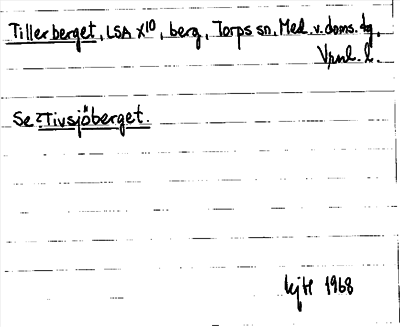 Tillerberget, LSA X10, berg, Torps sn, Med. v. doms. tg,
Vpnl. l.
Se ?Tivsjöberget.
kjH 1968